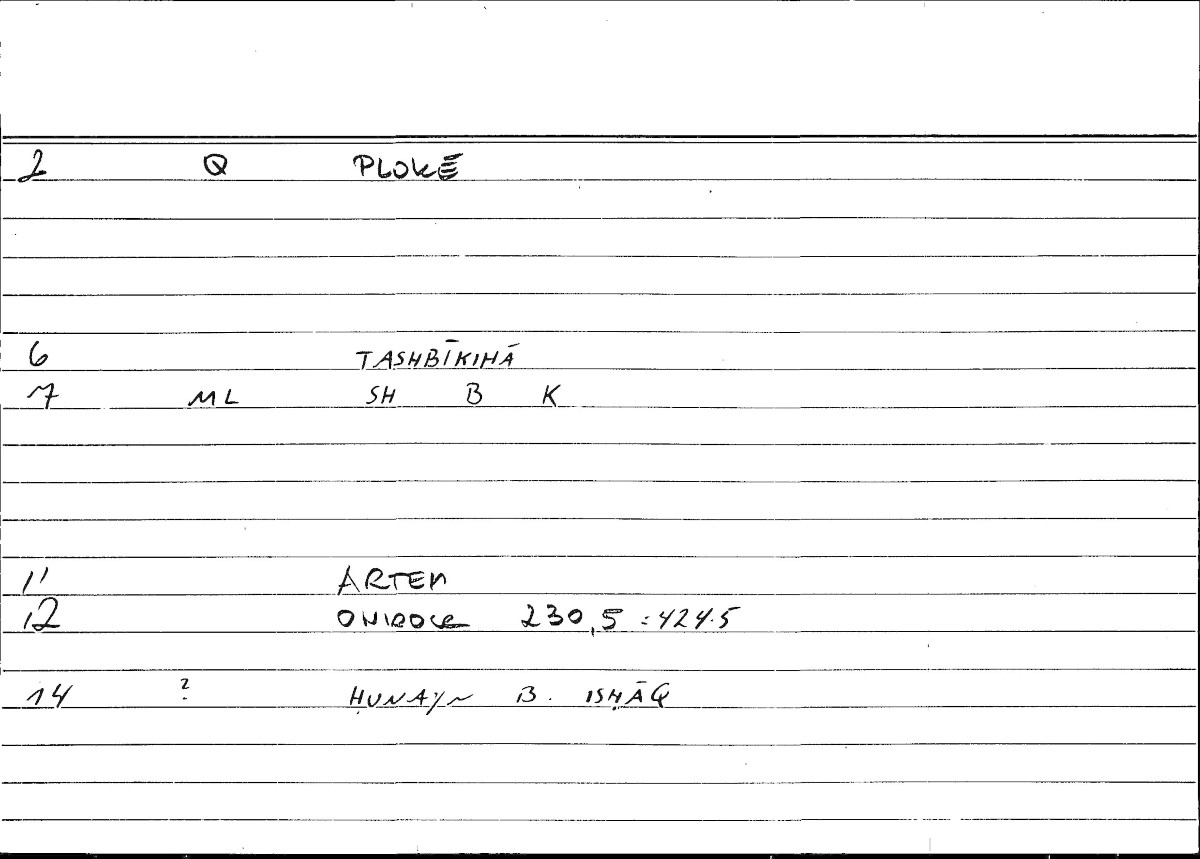 2 Q PLOKĒ
6 TASHBĪKIHĀ
7 ML SH B K
11 ARTEM
12 ONIROCR 230,5 = 424.5
14 ? ḤUNAYN B. ISḤĀQ